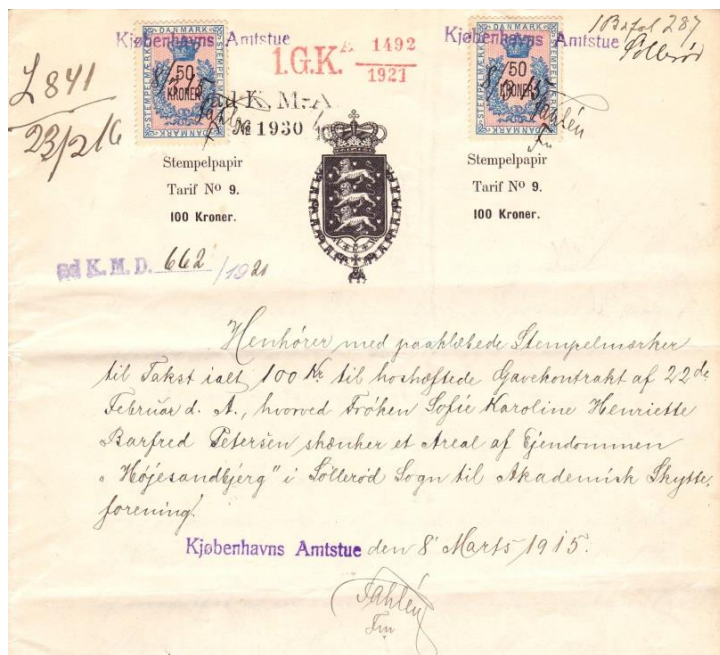 Kjøbenhavns Amtstue
DANMARK
STEMPELMÆRKE
50
KRONER
DANMARK
8/3 15
1.G.K. A 1492
1921
Kjøbenhavns Amtstue
DANMARK
STEMPELMÆRKE
50
KRONER
DANMARK
8/3 15
Fahlén
Fm
287
Søllerød
L 841
23/2 16
ad K. M.-A.
№ 1930
Stempelpapir
Tarif No 9.
100 Kroner.
Stempelpapir
Tarif No 9.
100 Kroner.
ad K. M. D. 662 /1921
Henhører med paaklæbede Stempelmærker
til Takst ialt 100 Kr til hoshæftede Gavekontrakt af 22de
Februar d. A., hvorved Frøken Sofie Karoline Henriette
Barfred Petersen skænker et Areal af Ejendommen
„Højesandbjerg" i Søllerød Sogn til Akademisk Skytte-
forening.
Kjøbenhavns Amtstue den 8' Marts 1915.
Fahlén
Fm